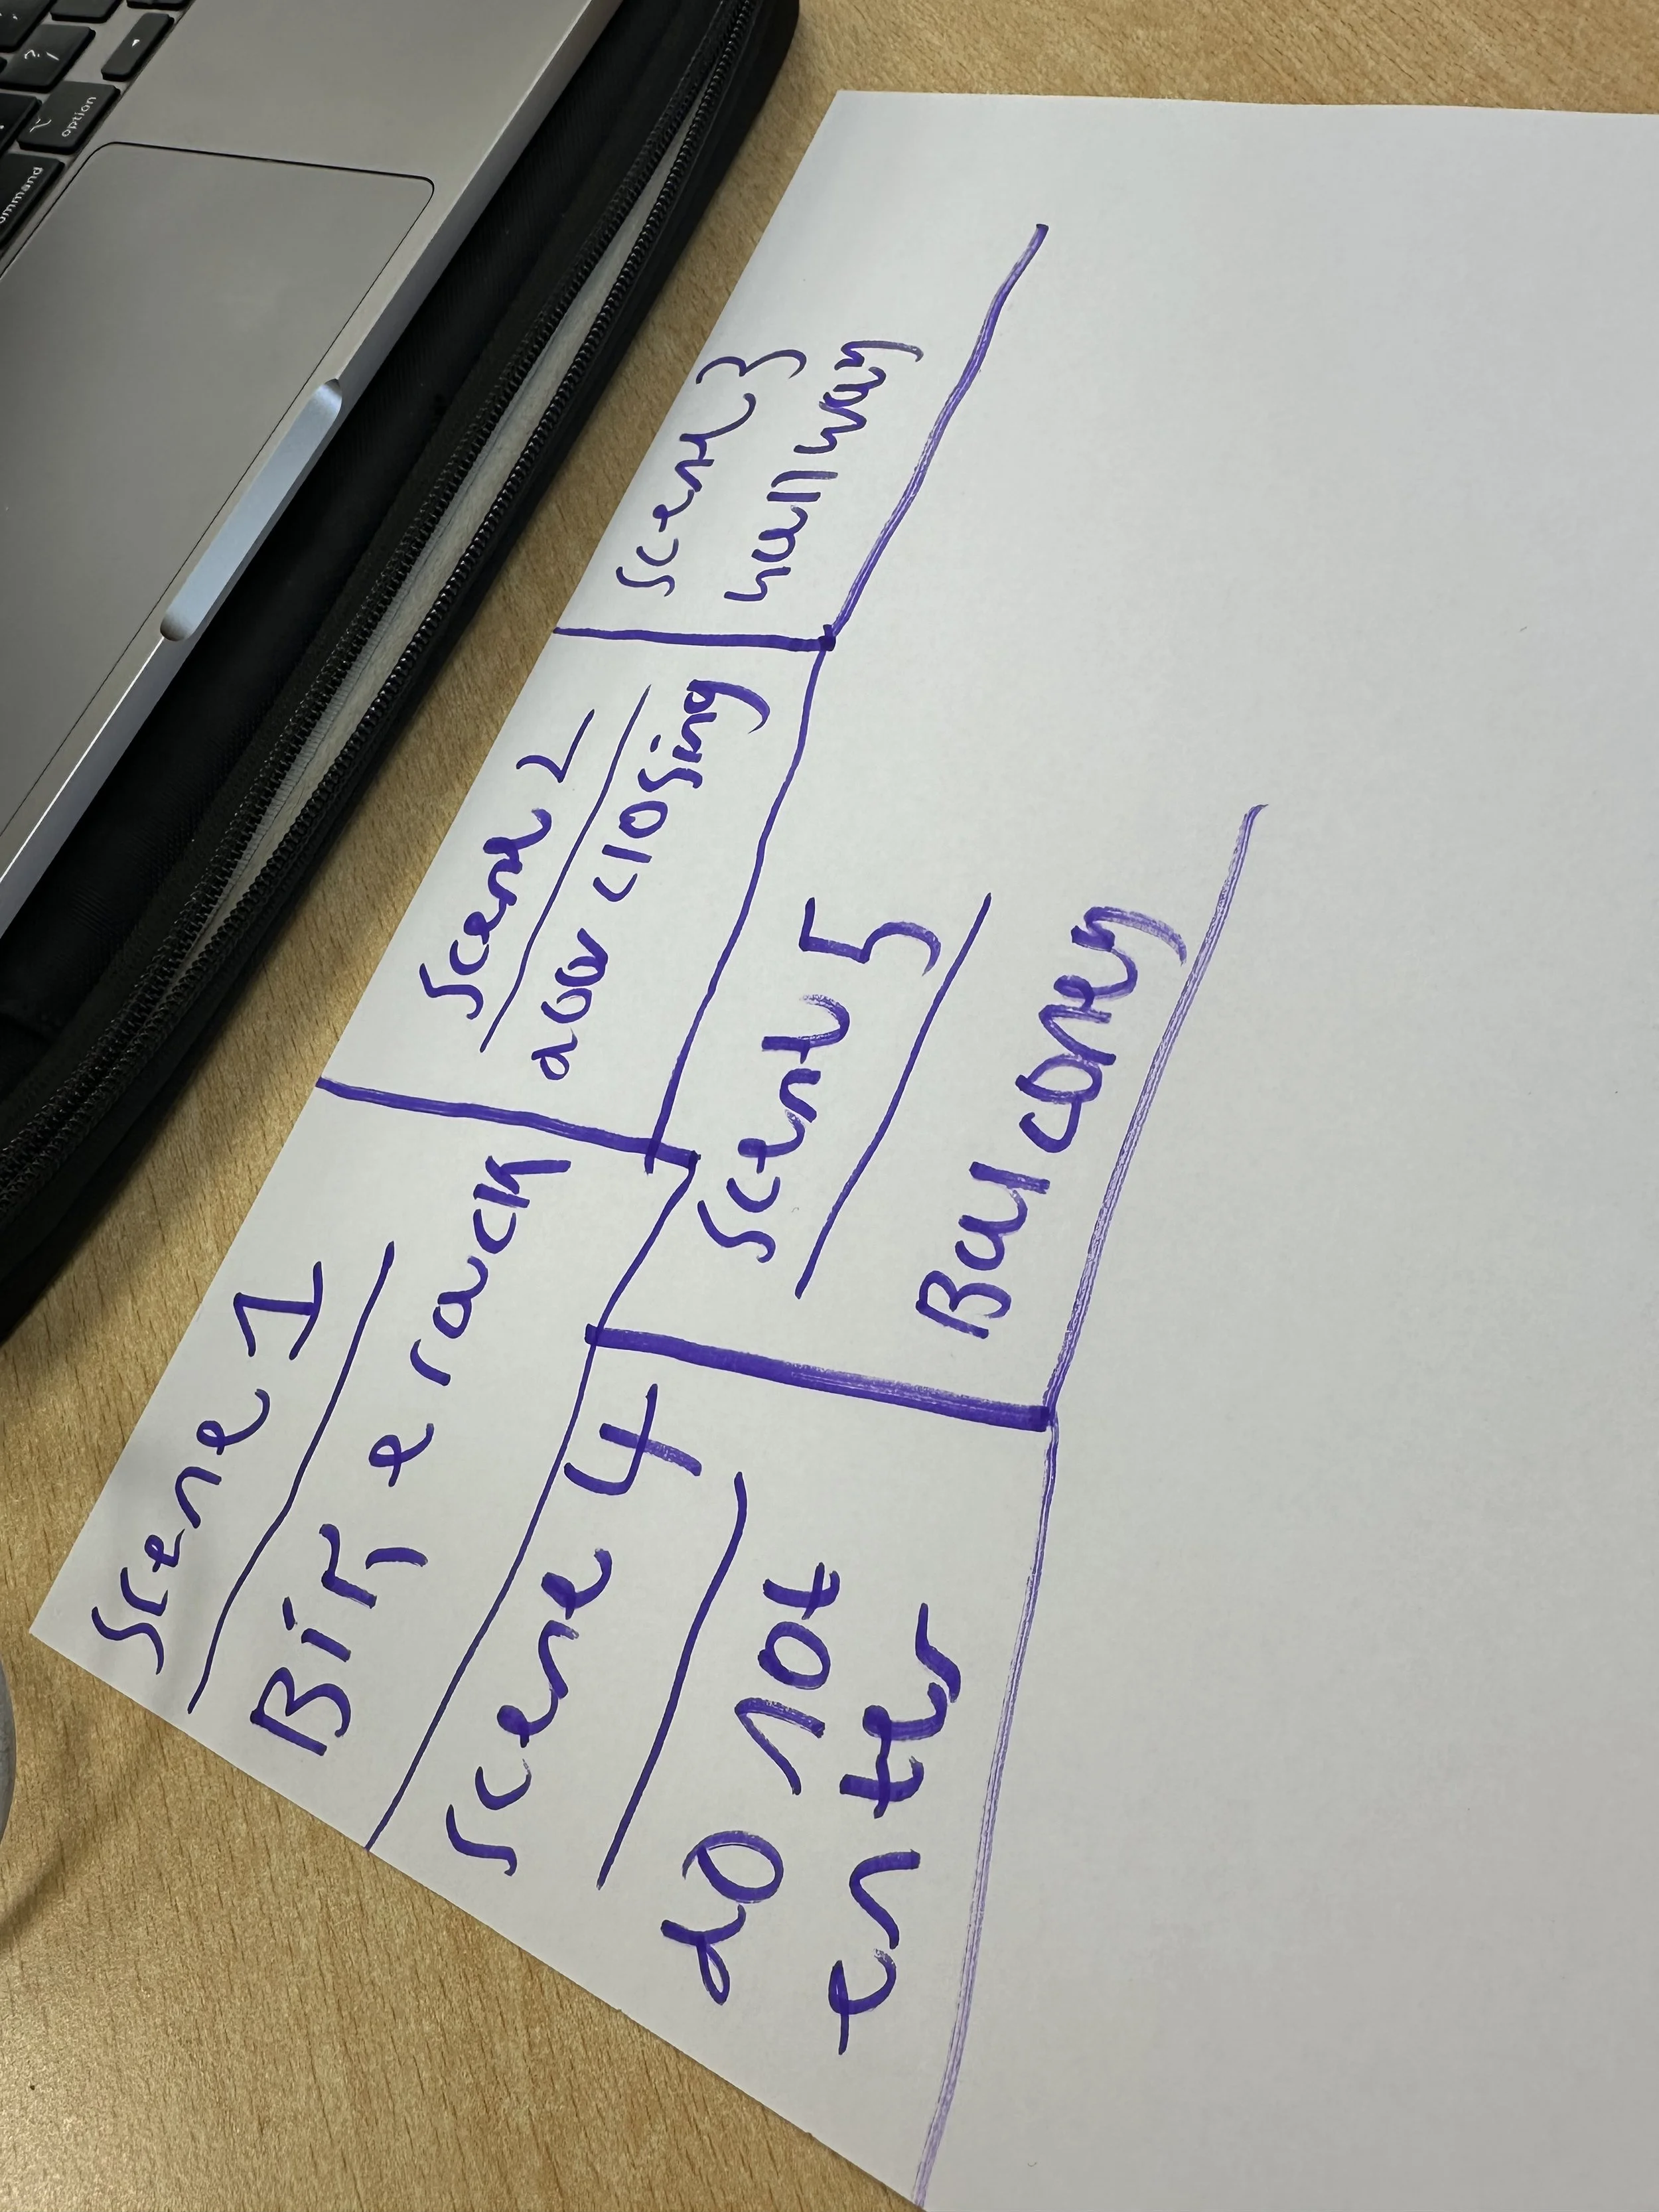 Scene 1
Bike rack
Scene 2
door closing
Scene 3
hallway
Scene 4
do not
enter
Scene 5
Balcony
option
ommand
?
/